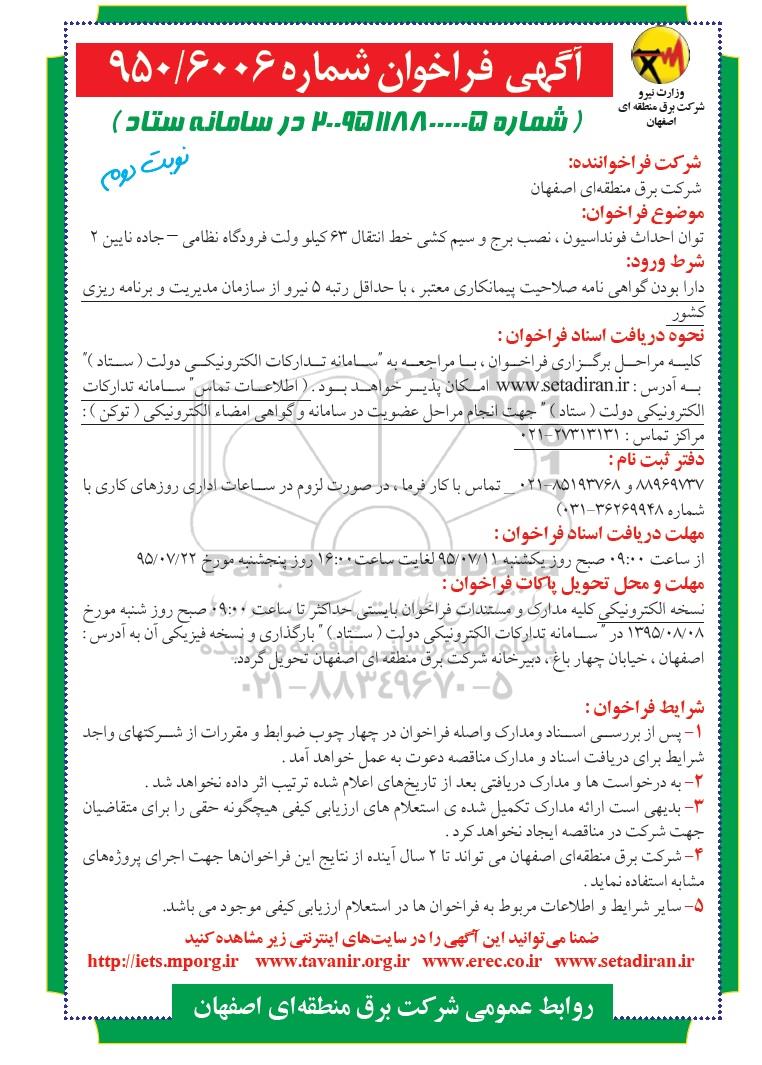 وزارت نیرو
شرکت برق منطقه ای
اصفهان
آگهی فراخوان شماره ۹۵۰/۶۰۰۶
( شماره ۲۰۰۹۵۱۱۸۸۰۰۰۰۰۵ در سامانه ستاد )
نوبت دوم
شرکت فراخواننده:
شرکت برق منطقه‌ای اصفهان
موضوع فراخوان:
توان احداث فونداسیون ، نصب برج و سیم کشی خط انتقال ۶۳ کیلو ولت فرودگاه نظامی – جاده نایین ۲
شرط ورود:
دارا بودن گواهی نامه صلاحیت پیمانکاری معتبر ، با حداقل رتبه ۵ نیرو از سازمان مدیریت و برنامه ریزی
کشور
نحوه دریافت اسناد فراخوان :
کلیه مراحل برگزاری فراخوان ، با مراجعه به "سامانه تدارکات الکترونیکی دولت ( ستاد )"
به آدرس : www.setadiran.ir امکان پذیر خواهد بود . ( اطلاعات تماس" سامانه تدارکات
الکترونیکی دولت ( ستاد ) " جهت انجام مراحل عضویت در سامانه و گواهی امضاء الکترونیکی ( توکن ) :
مراکز تماس : ۲۷۳۱۳۱۳۱-۰۲۱
دفتر ثبت نام :
۸۸۹۶۹۷۳۷ و ۸۵۱۹۳۷۶۸-۰۲۱ _ تماس با کار فرما ، در صورت لزوم در ساعات اداری روزهای کاری با
شماره ۳۶۲۶۹۹۴۸-۰۳۱)
مهلت دریافت اسناد فراخوان :
از ساعت ۰۹:۰۰ صبح روز یکشنبه ۹۵/۰۷/۱۱ لغایت ساعت ۱۶:۰۰ روز پنجشنبه مورخ ۹۵/۰۷/۲۲
مهلت و محل تحویل پاکات فراخوان :
نسخه الکترونیکی کلیه مدارک و مستندات فراخوان بایستی حداکثر تا ساعت ۰۹:۰۰ صبح روز شنبه مورخ
۱۳۹۵/۰۸/۰۸ در " سامانه تدارکات الکترونیکی دولت ( ستاد ) " بارگذاری و نسخه فیزیکی آن به آدرس :
اصفهان ، خیابان چهار باغ ، دبیرخانه شرکت برق منطقه ای اصفهان تحویل گردد.
ParsNamadData
پایگاه اطلاع رسانی مناقصه و مزایده
۰۲۱-۸۸۳۴۹۶۷۰-۵
شرایط فراخوان :
۱- پس از بررسی اسناد ومدارک واصله فراخوان در چهار چوب ضوابط و مقررات از شرکتهای واجد
شرایط برای دریافت اسناد و مدارک مناقصه دعوت به عمل خواهد آمد .
۲- به درخواست ها و مدارک دریافتی بعد از تاریخ‌های اعلام شده ترتیب اثر داده نخواهد شد .
۳- بدیهی است ارائه مدارک تکمیل شده ی استعلام های ارزیابی کیفی هیچگونه حقی را برای متقاضیان
جهت شرکت در مناقصه ایجاد نخواهد کرد .
۴- شرکت برق منطقه‌ای اصفهان می تواند تا ۲ سال آینده از نتایج این فراخوان‌ها جهت اجرای پروژه‌های
مشابه استفاده نماید .
۵- سایر شرایط و اطلاعات مربوط به فراخوان ها در استعلام ارزیابی کیفی موجود می باشد.
ضمنا می‌توانید این آگهی را در سایت‌های اینترنتی زیر مشاهده کنید
http://iets.mporg.ir www.tavanir.org.ir www.erec.co.ir www.setadiran.ir
روابط عمومی شرکت برق منطقه‌ای اصفهان